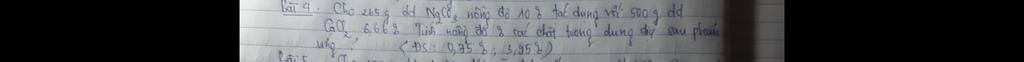 Bài 4. Cho 265 g dd Na2CO3 nồng độ 10 % tác dụng với 500 g dd
CaCl2 6,66 % Tính nồng độ % các chất trong dung dịch sau phản
ứng. (ĐS: 0,75 % ; 3,95 %)
Bài 5